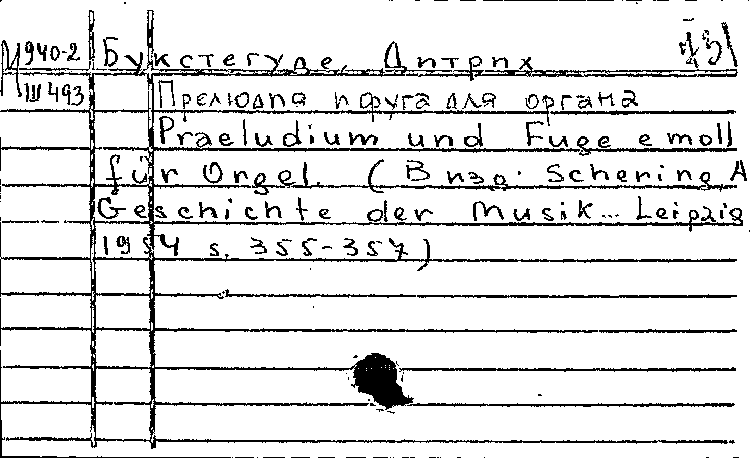 И940-2 Букстегуде, Дитрих
Ш493 Прелюдия и фуга для органа
Praeludium und Fuge e moll
für Orgel. (В изд. Schering, A
Geschichte der Musik... Leipzig
1954 s. 355-357)